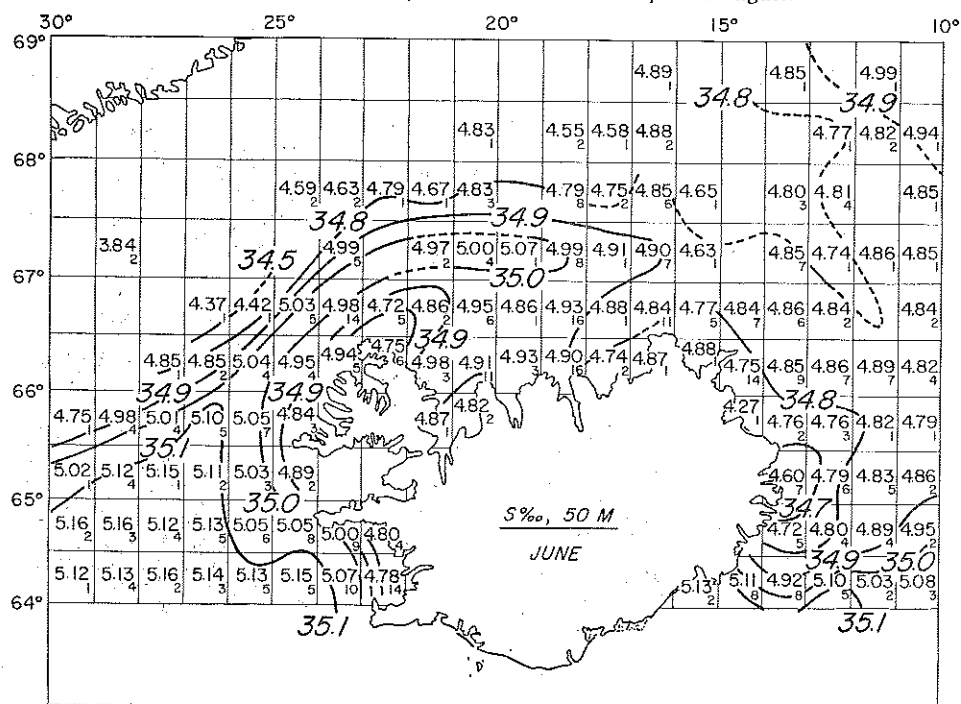 30° 25° 20° 15° 10°
69°
4.89 1 4.85 1 4.99 1
34.8 34.9
4.83 1 4.55 2 4.58 1 4.88 2 4.77 1 4.82 2 4.94 1
68°
4.59 2 4.63 2 4.79 1 4.67 1 4.83 3 4.79 8 4.75 2 4.85 6 4.65 1 4.80 3 4.81 4 4.85 1
34.8 34.9
3.84 2 34.5 4.99 5 4.97 2 5.00 4 5.07 1 4.99 8 4.91 1 4.90 7 4.63 1 4.85 7 4.74 1 4.86 1 4.85 1
67° 35.0
4.37 1 4.42 1 5.03 5 4.98 14 4.72 5 4.86 2 4.95 6 4.86 1 4.93 16 4.88 1 4.84 11 4.77 5 4.84 7 4.86 6 4.84 2 4.84 2
34.9
4.85 1 4.85 2 5.04 5 4.95 4 4.94 5 4.75 16 4.98 3 4.91 11 4.93 3 4.90 16 4.74 2 4.87 1 4.88 4.75 14 4.85 9 4.86 7 4.89 7 4.82 4
66° 34.9 34.9 34.8
4.75 1 4.98 4 5.01 4 5.10 5 5.05 7 4.84 4.87 1 4.82 2 4.27 1 4.76 2 4.76 3 4.82 1 4.79 1
35.1
5.02 1 5.12 4 5.15 1 5.11 2 5.03 3 4.89 2 4.60 7 4.79 6 4.83 5 4.86 2
65° 35.0 34.7
S‰, 50 M
5.16 2 5.16 3 5.12 4 5.13 5 5.05 6 5.05 8 5.00 9 4.80 4 4.72 5 4.80 4 4.89 4 4.95 2
JUNE
34.9 35.0
5.12 1 5.13 4 5.16 2 5.14 3 5.13 5 5.15 5 5.07 10 4.78 14 5.13 2 5.11 8 4.92 8 5.10 5 5.03 2 5.08 3
64°
35.1 35.1